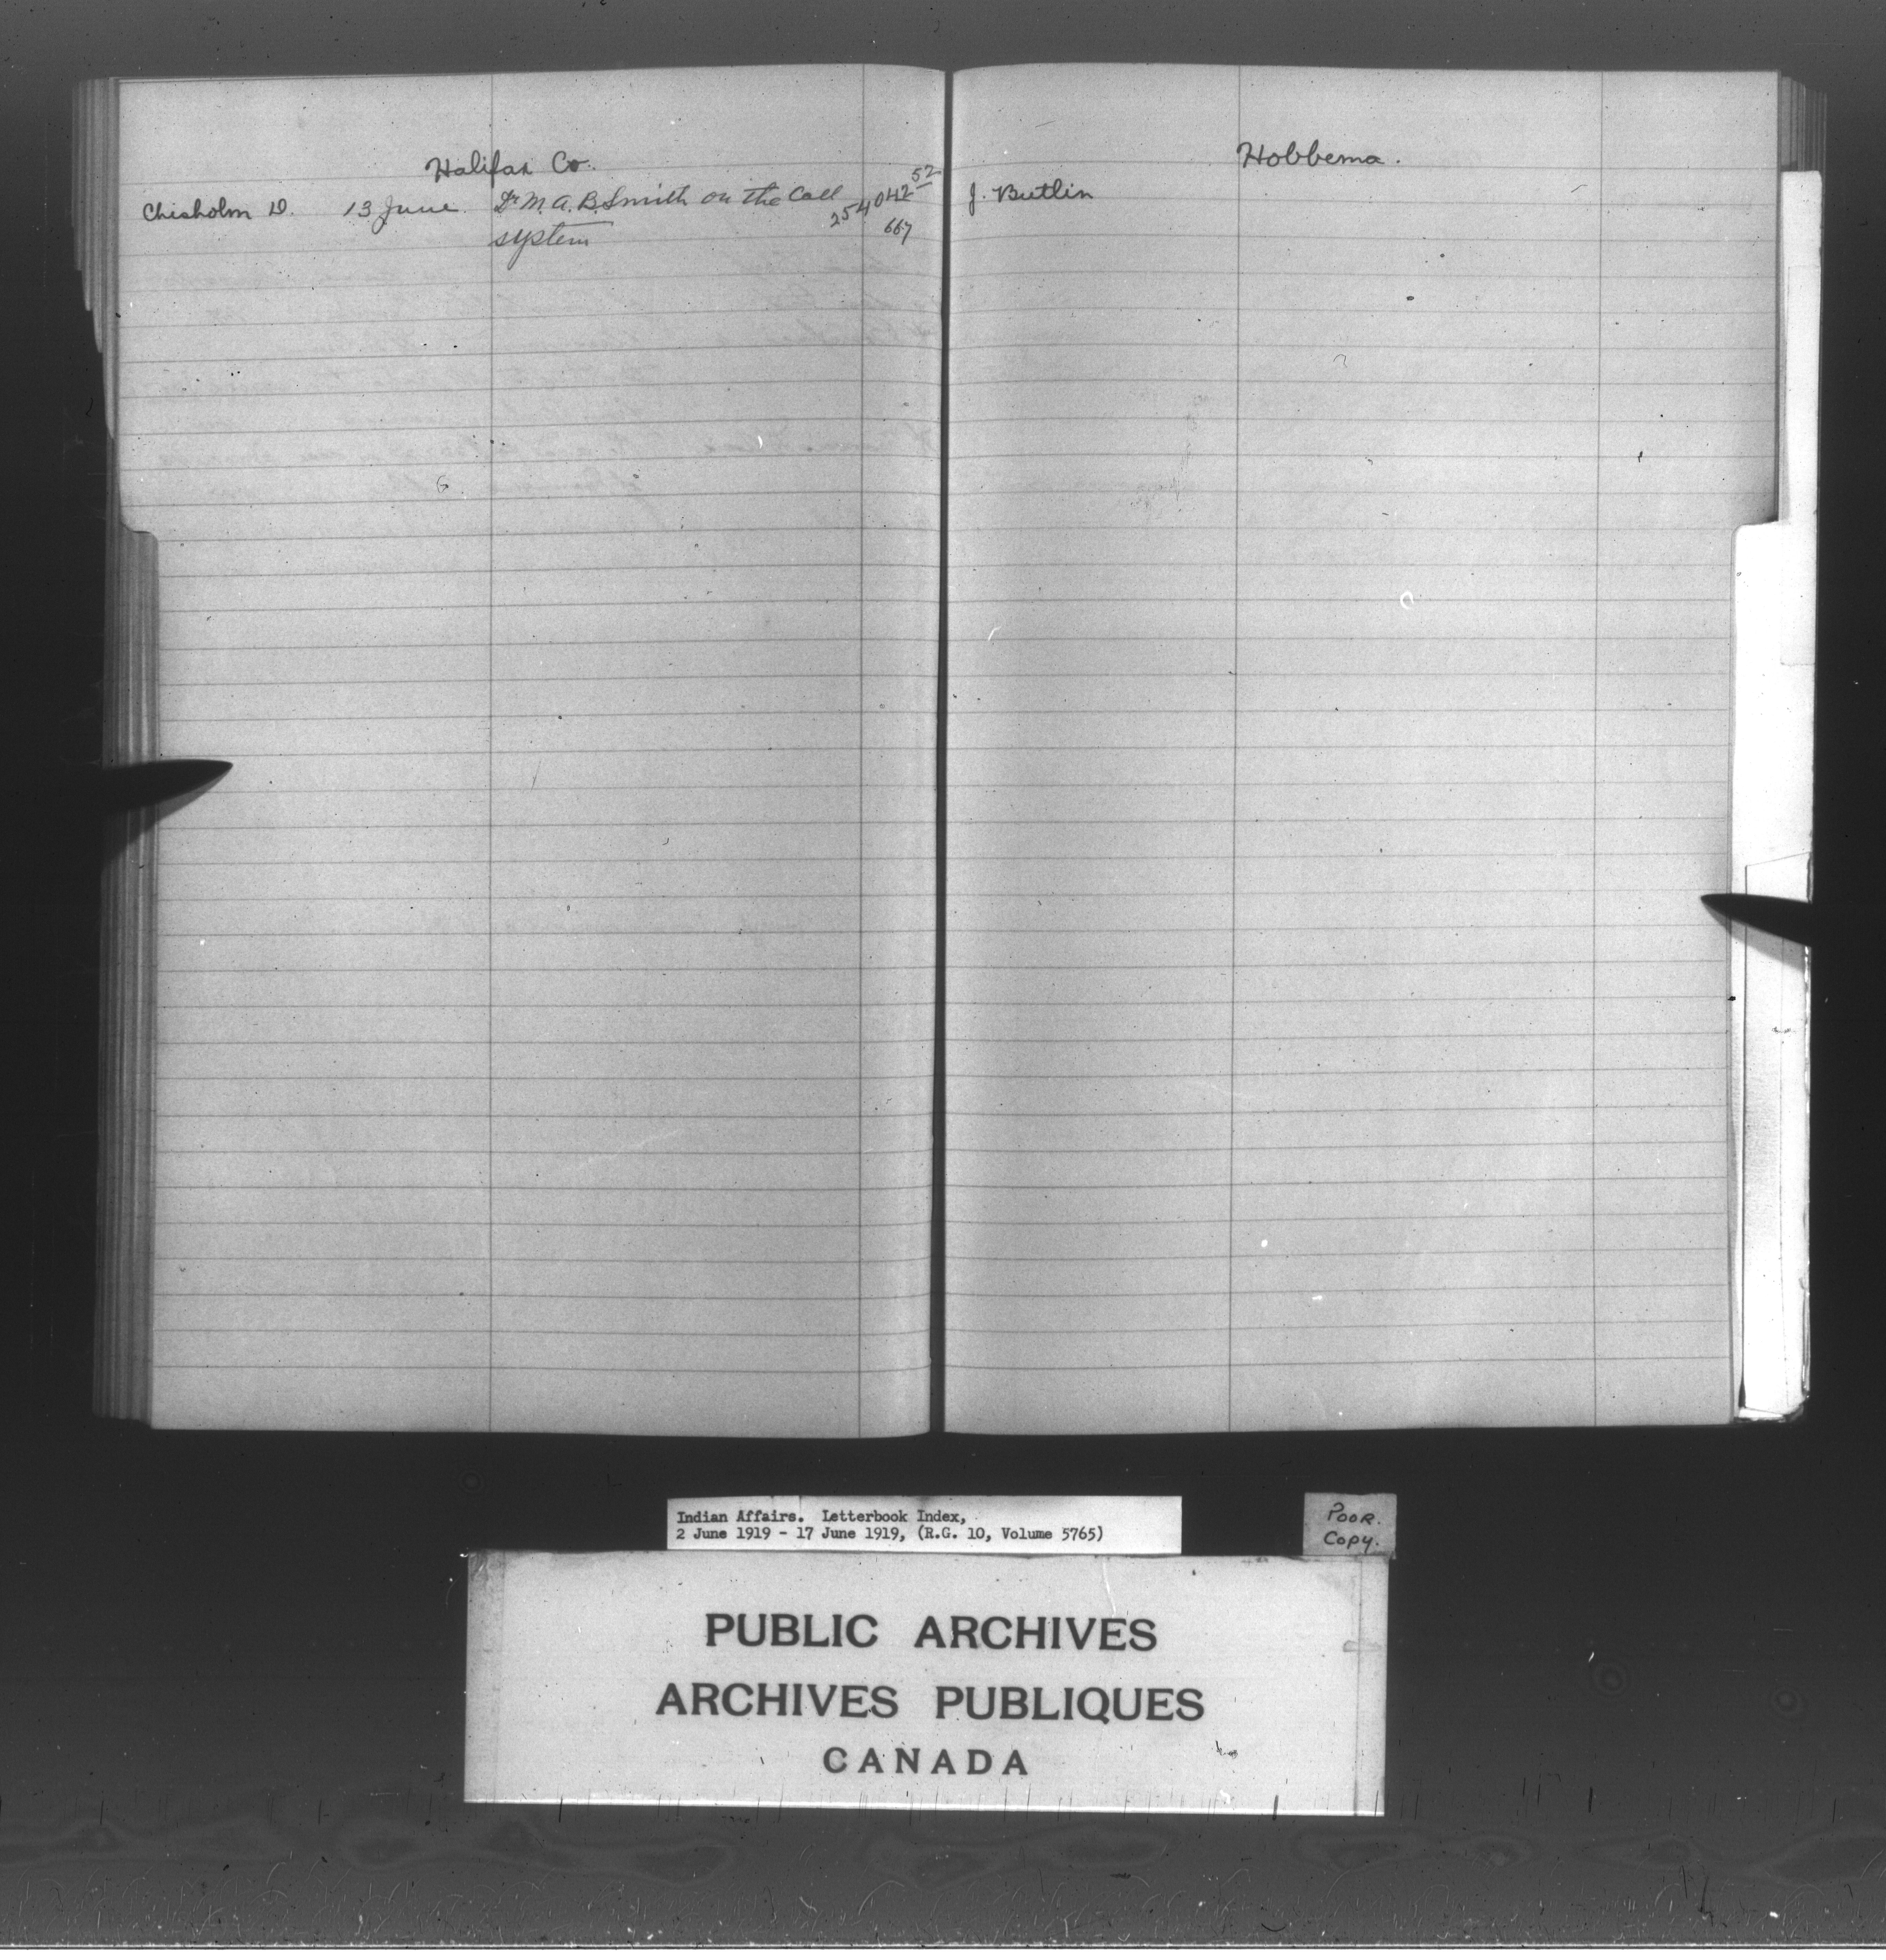 Halifax Co.
Chisholm D. 13 June Dr M. A. B. Smith on the Call 254042 52
system 667
Hobbema.
J. Butlin
Indian Affairs. Letterbook Index,
2 June 1919 - 17 June 1919, (R.G. 10, Volume 5765)
POOR.
COPY.
PUBLIC ARCHIVES
ARCHIVES PUBLIQUES
CANADA